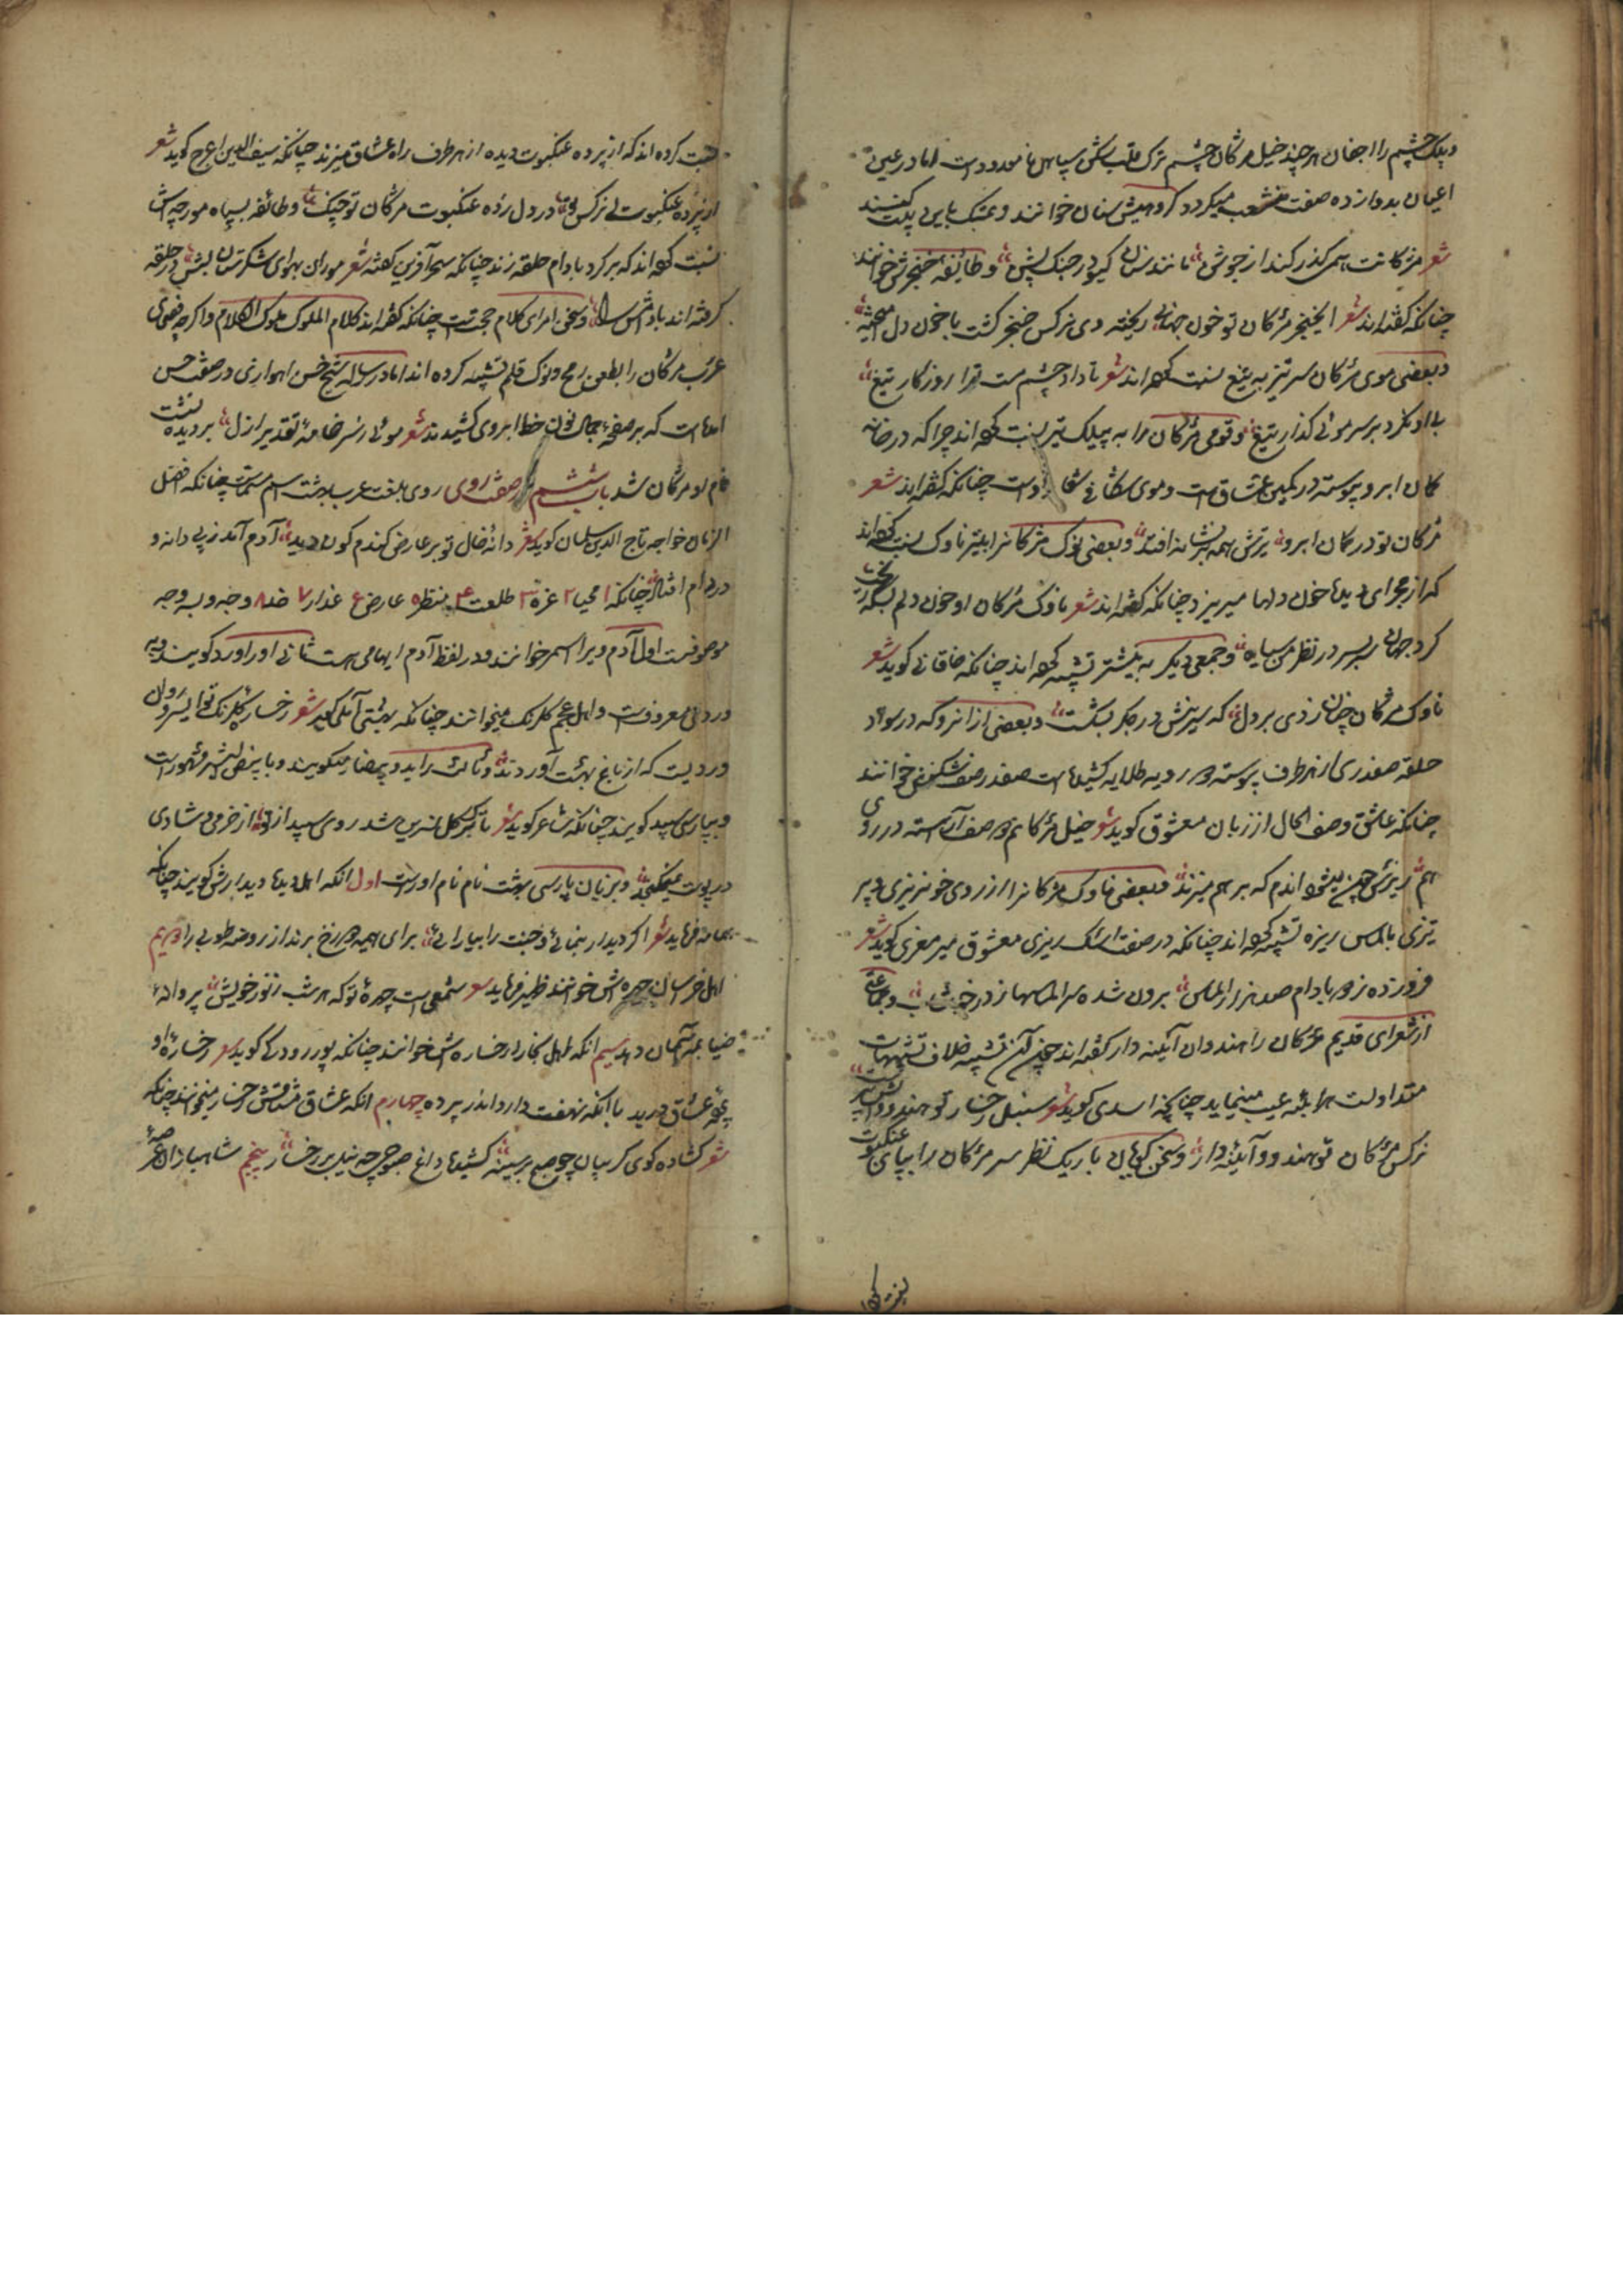 و پلک چشم را اجفان هر چند خیل مژگان چشم ترک قلب‌کش سپاهی نامعدودست اما در عین
اعیان بدوازده صفت منشعب میکردد کروهیش سنان خوانند و تمسک باین بیت کنند
شعر مژکانت همی گذر کند از جوشن مانند سنان گیو در جنگ پشن و طایفه خنجرش خوانند
چنانکه گفته‌اند شعر ای خنجر مژگان تو خون جهانی ریخته وی نرکس خنجر کشت با خون دل آمیخته
و بعضی موی مژگان سر تیز به تیغ نسبت کرده‌اند شعر تا داد چشم مست ترا روزکار تیغ
با او نکرد بر سر موئی گذار تیغ و قومی مژکان را به پیلک تیر نسبت کرده‌اند چرا که در خانه
کمان ابرو پیوسته در کمین عشاقست و موی شکافی اوست چنانکه گفته‌اند شعر
مژکان تو در کمان ابرو تیرش همه بر نشانه افتد و بعضی نوک مژکانرا بتیر ناوک نسبت کرده‌اند
که از مجرای دیدها خون دلها میریزد چنانکه گفته‌اند شعر ناوک مژکان او خون دلم بسکه ریخت
کرد جهان سر بسر در نظر من سیاه و جمعی دیکر به نیشتر تشبیه کرده‌اند چنانکه خاقانی کوید شعر
ناوک مژکان چنان زدی بر دل که سر نیش در جکر بشکست و بعضی از انرو که در سواد
حلقه صفدری از هر طرف پیوسته دو رویه طلایه کشیده است صفدر صف‌شکن خوانند
چنانکه عاشق وصف الحال از زبان معشوق کوید شعر خیل مژکانم دو صف آراسته در روی
هم ریزش خون میشود اندم که بر هم میزند و بعضی ناوک مژکانرا از روی خونریزی و پر
تیزی بالماس ریزه تشبیه کرده‌اند چنانکه در صفت اشک ریزی معشوق میر معزی کوید شعر
فرو زده ز دو بادام صد هزار الماس برون شده سر الماسها ز در خوشاب و جماعتی
از شعرای قدیم مژکان را هندوان آئینه دار گفته‌اند چون آن تشبیه خلاف تشبیهات
متداولست هرآینه عیب مینماید چنانکه اسدی کوید شعر سنبل رخسار تو هندوی آتش پرست
نرکس مژکان تو هندوو آئینه دار و سخن کویان باریک نظر سر مژکان را بپای عنکبوت
نسبت کرده
نسبت کرده‌اند که از پرده عنکبوت دیده از هر طرف راه عشاق میزند چنانکه سیف الدین اعرج کوید شعر
از پرده عنکبوت ای نرکس در دل زده عنکبوت مژکان تو چنک و طائفه بسپاه مورچه‌اش
نسبت کرده‌اند که بر کرد بادام حلقه زند چنانکه سحرآفرین کفته شعر موران بهوای شکرستان لبش در حلقه
کرفته‌اند بادامش را و سخن امرای کلام حجتست چنانکه کفته‌اند کلام الملوک ملوک الکلام و اکرچه فصحای
عرب مژکان را بطعن رمح و نوک قلم تشبیه کرده‌اند اما در رساله شیخ حسن اهوازی در صفت حسن
آمده است که بر صفحه جمال نون خط ابروی کشیدند شعر موئی ز سر خامه تقدیر ازل بر دیده نشست
نام او مژکان شد باب ششم در صفت روی روی بلغت عرب بهشت اسم مسمّاست چنانکه افضل
الزمان خواجه تاج الدین سلمان کوید شعر دانه خال تو بر عارض کندم کون دید آدم آمد ز پی دانه و
در دام افتاد چنانکه ۱ محیا ۲ غره ۳ طلعت ۴ منظر ۵ عارض ۶ عذار ۷ خد ۸ وجه و به وجه
موصوفست اول آدم ویرا اسمر خوانند و در لفظ آدم ایهامی هست ثانی او را ورد کویند و به
وردی معروفست و اهل عجم کلرنک میخوانند چنانکه بهشتی آملی کوید شعر رخسار کلرنک تو ای سرو روان
وردیست که از باغ بهشت آوردند و ثالث را بید و بیضا میکویند و با بیض البشر مشهورست
و بپارسی سپید کویند چنانکه شاعر کوید شعر تا ز کل نسرین شد روی سپید از تو از خرمی و شادی
در پوست نمیکنجد و بزبان پارسی بهشت نام نام اوراست اول انکه اهل دیدها دیدارش کویند چنانکه
همام فرماید شعر اکر دیدار بنمائی و جنت را بیارائی برای هیمه دوزخ برند از روضه طوبی را دویم
اهل خراسان چهره‌اش خوانند ظهیر فرماید شعر شمعی است چهره تو که هر شب ز نور خویش پروانه
ضیا بمه آسمان دهد سیم انکه اهل بخارا رخساره‌ش خوانند چنانکه پور رودکی کوید شعر رخساره او
پرده عشاق درید با انکه نهفت دارد اندر پرده چهارم انکه عشاق مشتاقش رخسار میخوانند چنانکه
شعر کشاده کوی کریبان چو صبح بر سینه کشیدها داغ صبوحی چه نیل بر رخسار پنجم شاهبازان عرصه